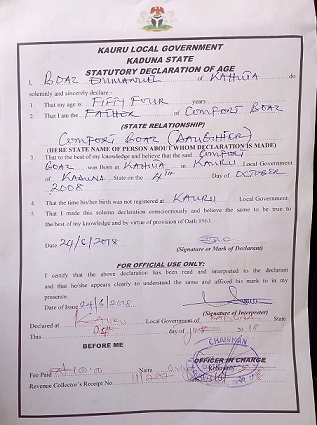 KAURU LOCAL GOVERNMENT
KADUNA STATE
STATUTORY DECLARATION OF AGE
I, BOAZ EMMANUEL of KAHUTA do
solemnly and sincerely declare:-
1. That my age is FIFTY FOUR years
2. That I am the FATHER of COMFORT BOAZ
(STATE RELATIONSHIP)
COMFORT BOAZ (DAUGHTER)
(HERE STATE NAME OF PERSON ABOUT WHOM DECLARATION IS MADE)
3. That to the best of my knowledge and believe that the said COMFORT
BOAZ was Born at KAHUTA in KAURU Local Government
of KADUNA State on the 4TH Day of OCTOBER
2008
4. That the time his/her birth was not registered at KAURU Local Government.
5. That I made this solemn declaration conscientiously and believe the same to be true to
the best of my knowledge and by virtue of provision of Oath 1963.
Date 24/6/2018
(Signature or Mark of Declarant)
FOR OFFICIAL USE ONLY:
I certify that the above declaration has been read and interpreted to the declarant
and that he/she appears clearly to understand the same and affixed his mark to in my
presence.
Date of Issue 24/6/2018
(Signature of Interpreter)
Declared at Local Government of State
This day of 18
BEFORE ME
CHAIRMAN
OFFICER IN CHARGE
Fee Paid Naira
Revenue Collector's Receipt No.